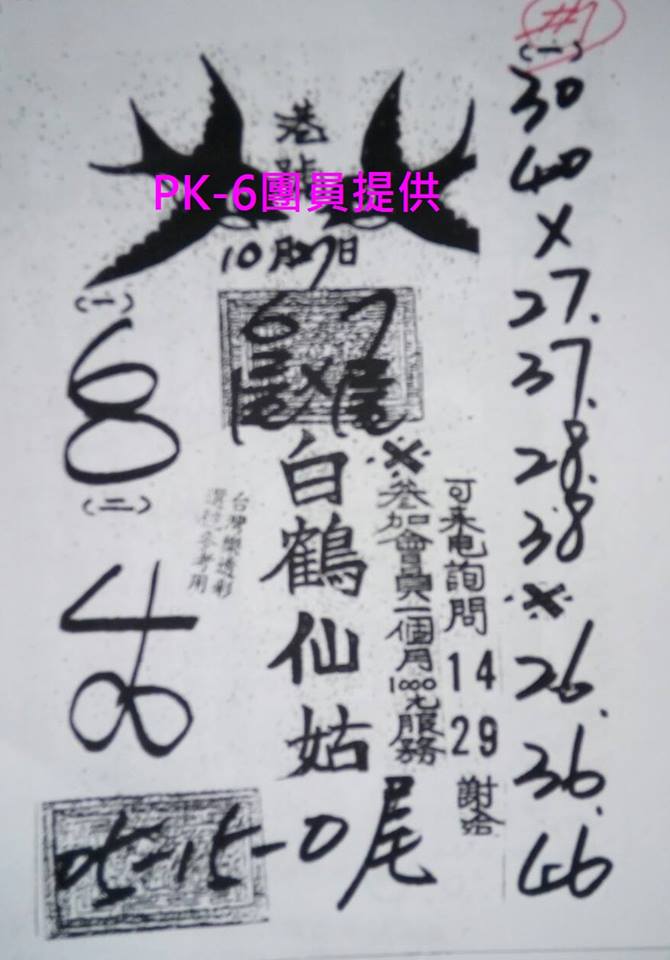 #1
港
PK-6團員提供
10月27日
6 7
尾 X 尾
白鶴仙姑
台灣樂透彩
選務參考用
參加會員一個月1000元服務
可来电詢問
14
29
謝洽
(一)
8
(二)
4
8
05-15-0尾
(一)
30
40
X
27.
37.
28.
38
X
26.
36.
46